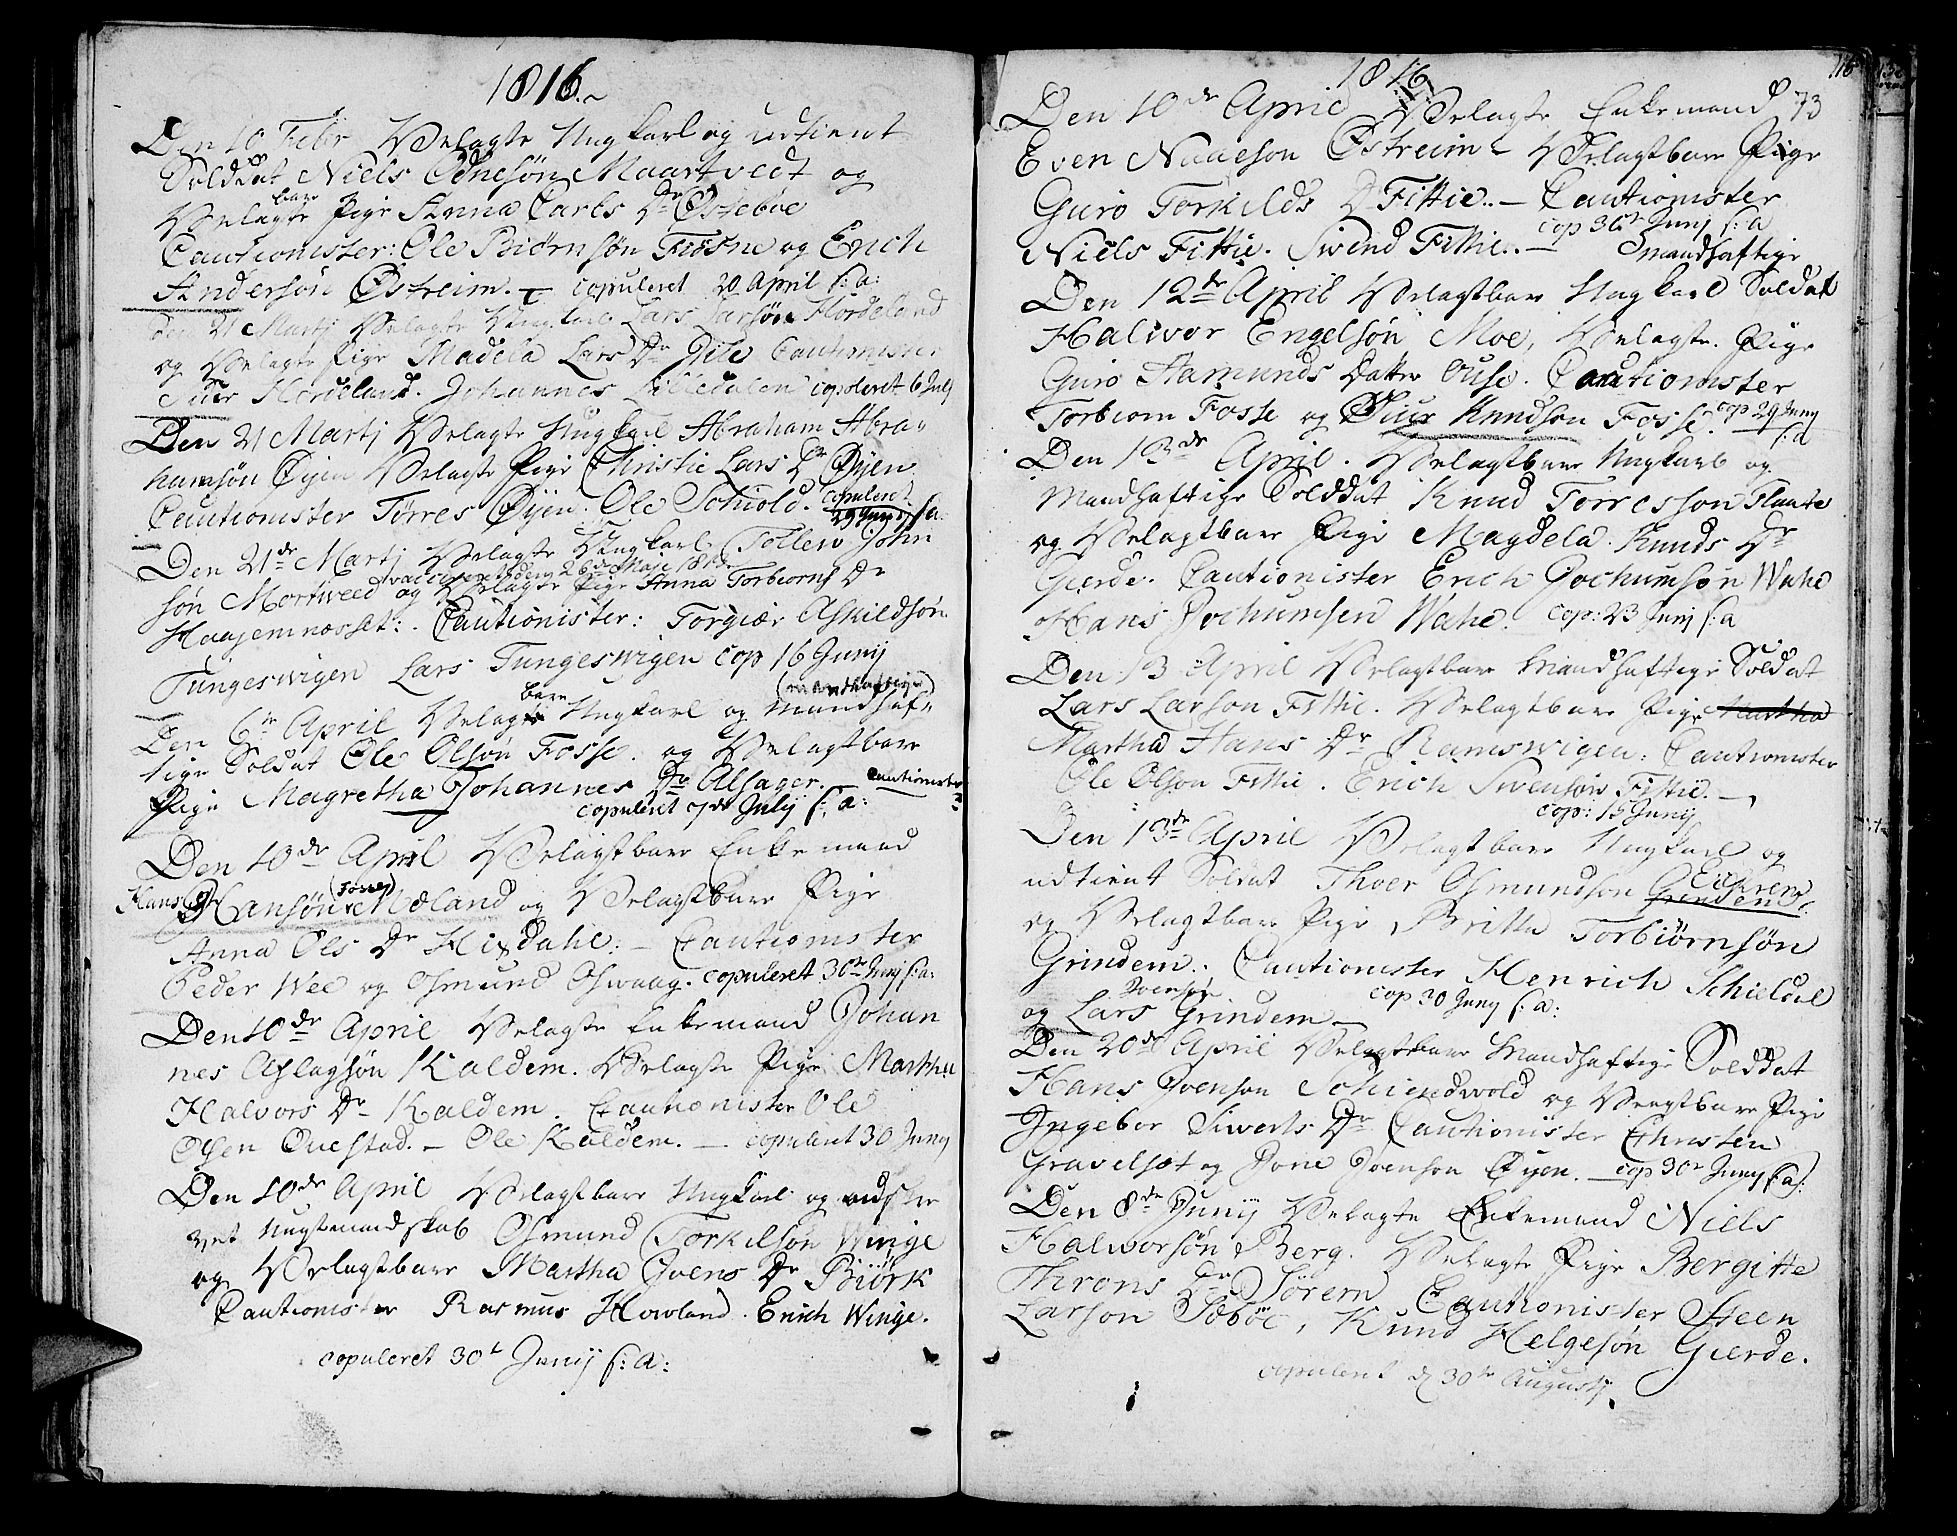 1816.
Den 10 Febr Velagte Ungkarl og udtient
Soldat Niels Odnesøn Maartvedt og
bare
Velagte Pige Anna Carls Dr Østebøe
Cautionister: Ole Biørnsøn Frøsne og Erich
Andersøn Østreim. copuleret 20 April s: a:
den 21 Martj Velagte Ungkarl Lars Larsøn Hordeland
og Velagte Pige Madela Lars Dr Cautionister
Hordeland. Johannes Lilledalen copuleret 6 July
Den 21 Martj Velagte Ungkarl Abraham Abra-
hamsøn Øyen Velagte Pige Christie Lars Dr Øyen
Cautionister Tørres Øyen. Ole Schiold. copuleret
29 Junij s: a:
Den 21de Martj Velagte Ungkarl Tollew John
vaccineret den 26de
søn Mortweed og Velagte Pige Anna Torbiorns Dr
Haajemnæsset: Cautionister: Torgiær Askildsøn
Tungeswigen Lars Tungeswigen cop 16 Junij
bare (mandhaftige)
Den 6te April Velagte Ungkarl og Mandhaf-
tige Soldat Ole Olsøn Fosse. og Velagtbare
Pige Magretha Johannes Dr Alsager. Cautionister
copuleret 7de Julij s: a:
Den 10de April Velagtbare Enkemand
Hans Hansøn Mæland og Velagtbare Pige
Anna Ols Dr Hixdahl: – Cautionister
Peder Wee og Osmund Oswaag. copuleret 30te Junij s: a:
Den 10de April Velagte Enkemand Johan
nes Aslagsøn Kaldem. Velagte Pige Martha
Halvors Dr Kaldem. Cautionister Ole
Olsen Questad. – Ole Kaldem. – copuleret 30 Junij
Den 10de April Velagtbare Ungkarl og udskre
vet Osmund Torkilsøn Winge
og Velagtbare Martha Ivens Dr Biørk
Cautionister Rasmus Howland. Erich Winge.
copuleret 30te Junij s: a:
1816
116
73
Den 10de April Velagte Enkemand
Even Naaeson Østreim – Velagtbare Pige
Guro Torkilds D Fittie. – Cautionister
cop 30te Junij s: a
Niels Fittie. Swend Fittie. –
Mandhaftige
Den 12de April Velagtbare Ungkarl Soldat
Halwor Engelsøn Moe, Velagte Pige
Guro Aamunds Datter Ouse. Cautionister
Torbiorn Fosse og Siur Knudson Fosse. cop 29 Junij
s: a
Den 13de April. Velagtbare Ungkarl og
Mandhaftige Solddat Knud Torresson Flaate
og Velagtbare Pige Magdela Knuds Dr
Gierde. Cautionister Erich Jochumsøn Wahe
Hans Jochumsen Wahe. cop: 23 Junij s: a
Den 13 April Velagtbare Mandhaftige Soldat
Lars Larson Fittie. Velagtbare Pige Martha
Martha Hans Dr Ramswigen: Cautionister
Ole Olson Fittie. Erich Swensøn Fittie. –
cop: 15 Junij
Den 13de April Velagtbare Ungkarl og
udtient Soldat Thoer Osmundson Grindem
og Velagtbare Pige Britta Torbiørnsøn
Grindem. Cautionister Henrich Schieldal
Ivensøn cop 30 Junij s: a:
og Lars Grindem –
Den 20de April Velagtbare Mandhaftige Solddat
Hans Ivenson Schiendwold og Velagtbare Pige
Ingebor Siwerts Dr Cautionister Christen
Gravelsæt og Ivenson Øyen. – cop 30te Junij s: a:
Den 8de Junij Velagte Enkemand Niels
Halworsøn Berg. Velagte Pige Bergitte
Throns Dr Sørem Cautionister Steen
Larson Søbøe, Knud Helgesøn Gierde.
copuleret d 30te Augustj.